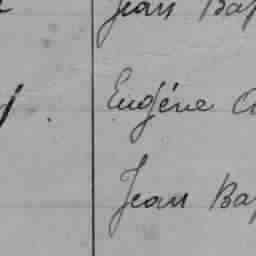 Jean Bap
Eugéne
Jean Bap